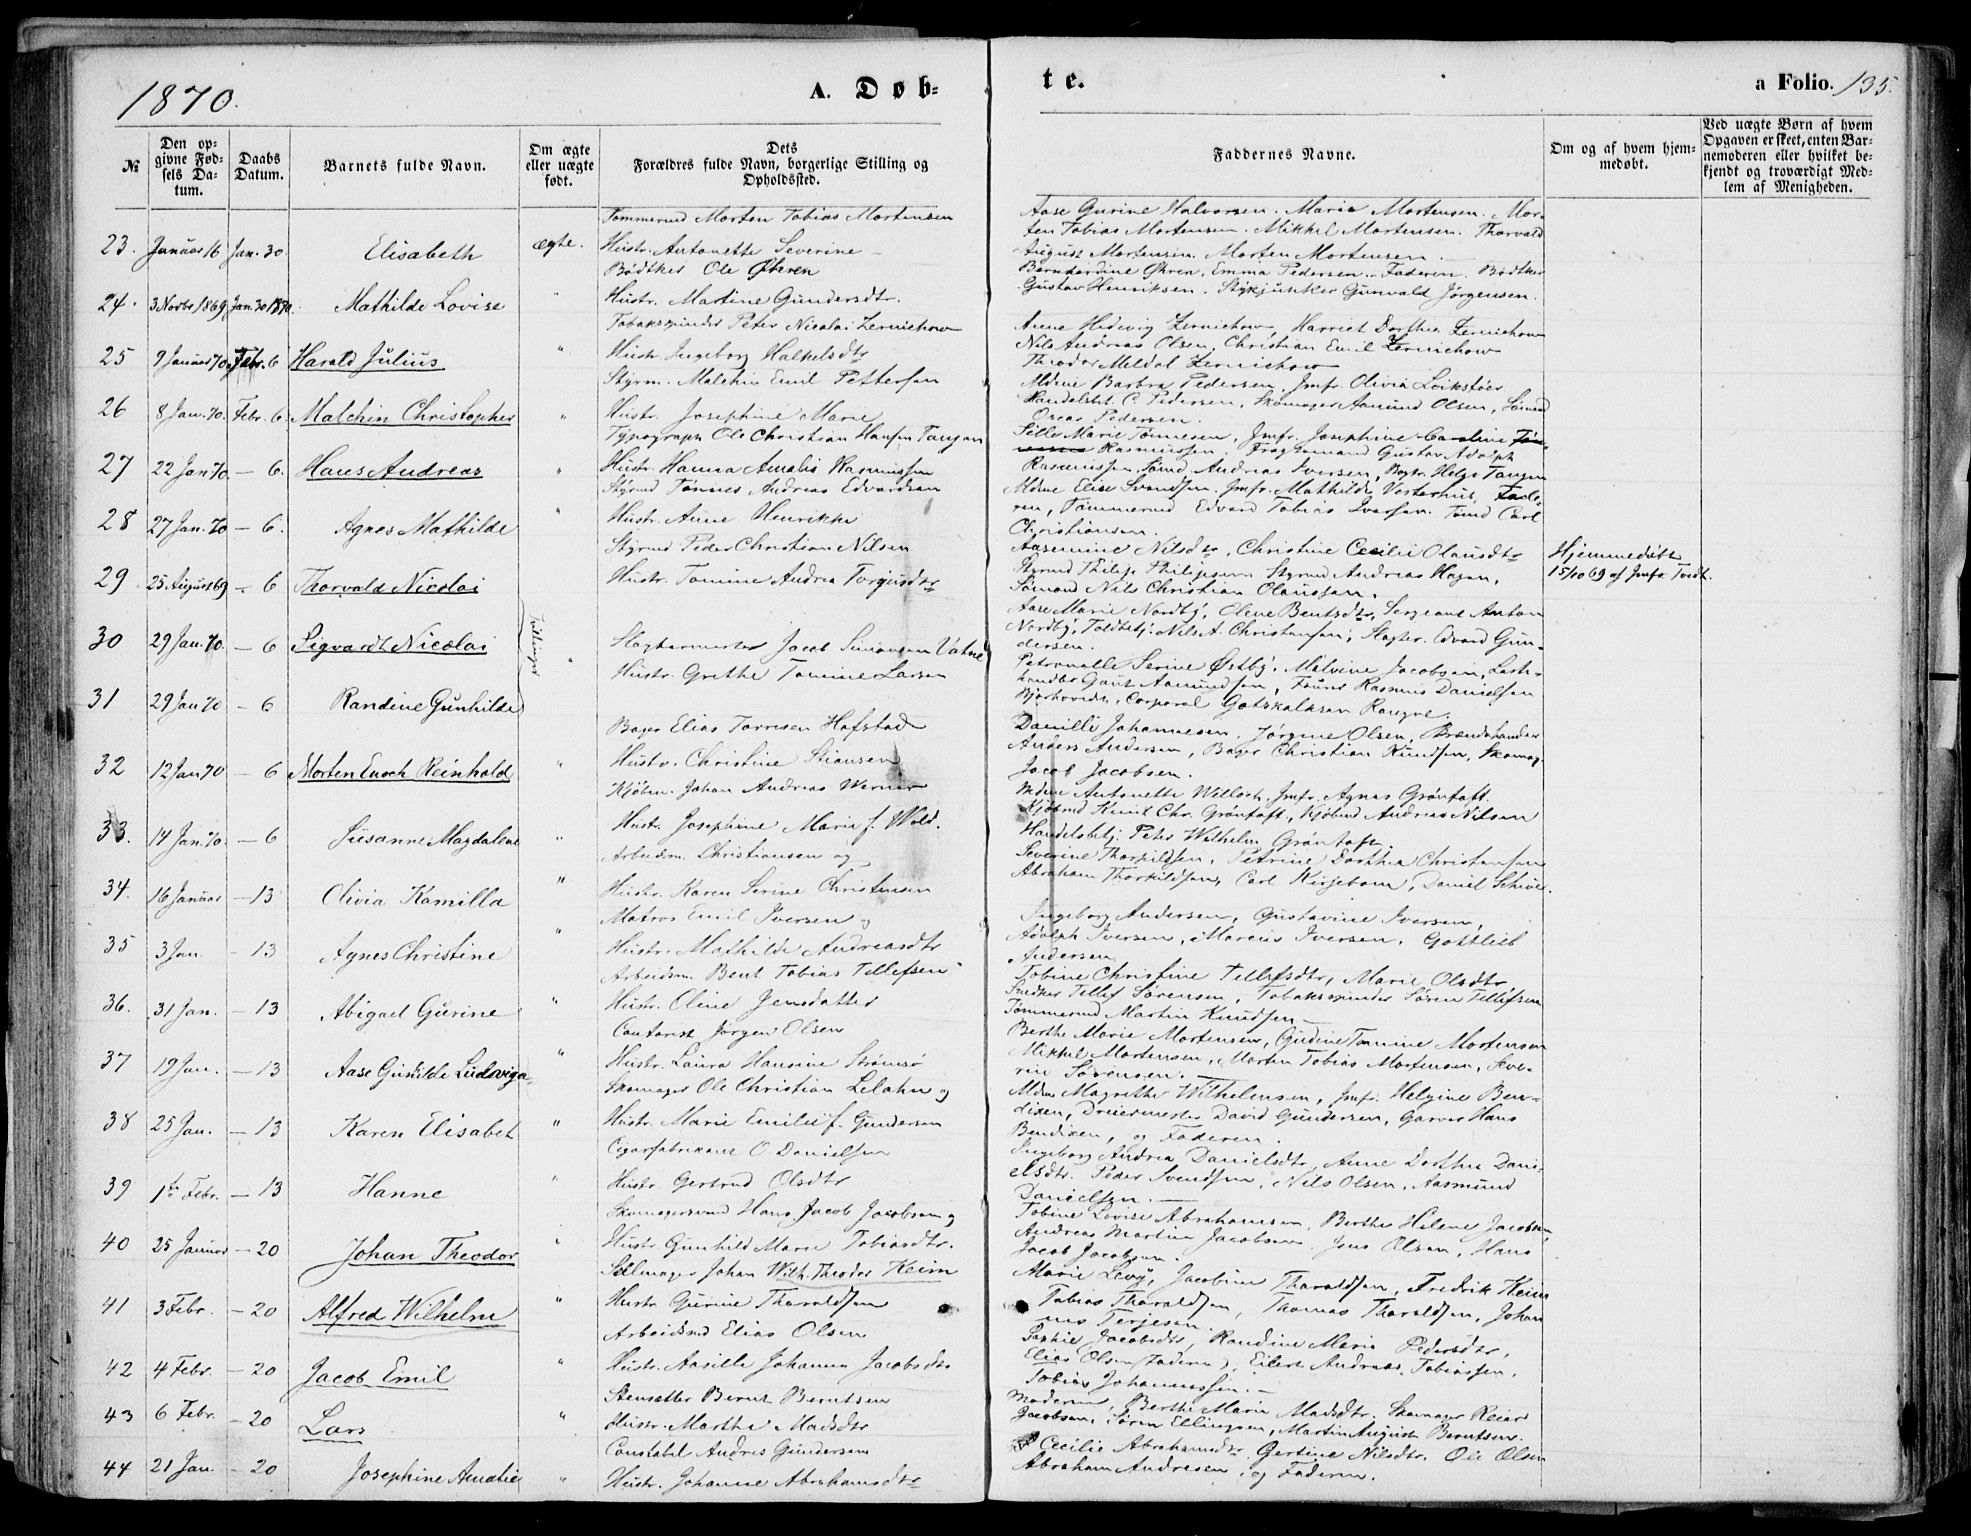 1870.
A. Døb-
te.
a Folio. 135.
№
Den op-
givne Fød-
sels Da-
tum.
Daabs
Datum.
Barnets fulde Navn.
Om ægte
eller uægte
født.
Dets
Forældres fulde Navn, borgerlige Stilling og
Opholdssted.
Faddernes Navne.
Om og af hvem hjem-
medøbt.
Ved uægte Børn af hvem
Opgaven er skeet, enten Bar-
nemoderen eller hvilket be-
kjendt og troværdigt Med-
lem af Menigheden.
23. Januar 16 Jan. 30. Elisabeth ægte.
Tømmermd Morten Tobias Mortensen
Hustr. Antonette Severine
Aase Gurine Halvorsen. Maria Mortensen. Mor-
ten Tobias Mortensen. Mikkel Mortensen. Thorvald
August Mortensen. Morten Mortensen.
24. 3 Novbr 1869 Jan. 30 1870. Mathilde Lovise "
Bødtker Ole Øhren
Hustr. Martine Gundersdtr.
Berntardine Øhren, Emma Pedersen. Faderen. Bødtker
Gustav Henriksen. Stykjunker Gunvald Jørgensen.
25 9 Januar 70 Febr. 6 Harald Julius "
Tobakspinder Peter Nicolai Zernichow
Hustr. Ingeborg Halkelsdtr
Anne Hedevig Zernichow, Harriet Dorthea Zernichow
Nils Andreas Olsen, Christian Emil Zernichow
Theodor Meldal Zernichow
26 8 Jan. 70. Febr. 6 Malchin Christopher "
Styrm. Malchin Emil Pettersen
Hustr. Josephine Marie
Mdme Barbra Pedersen, Jmfr. Olivia
Handelsbt. C. Pedersen, Skomager Aamund Olsen, Sømand
Oscar Pedersen.
27 22 Jan 70 — 6. Hans Andreas "
Typograph Ole Christian Hansen Tangen
Hustr. Hanna Amalia Rasmussen
Sille Marie Tønnesen, Jmfr. Josephine Caroline
Rasmussen, Gustav Adolph
Rasmussen, Sømd. Andreas Iversen, Helge Tangen
28 27 Jan. 70 — 6. Agnes Mathilde "
Styrmd Tønnes Andreas Edvardsen
Hustr. Anne Henrikke
Mdme Elise Svendsen. Jmfr. Mathilde Vesterhus, Fade-
ren, Tømmermd Edvard Tobias Iversen. Tømd Carl
Christiansen.
29 25 August 69 — 6 Thorvald Nicolai
Styrmd Peder Christian Nilsen
Hustr. Tomine Andrea Torjusdtr
Aasemine Nilsdtr, Christine Cecilie Olausdtr
Styrmd Philip Philipsen. Styrmd Andreas Hagen,
Sømand Nils Christian Olaussen.
Hjemmedøbt
15/10 69 af Jmfr. Tvedt.
30 29 Jan. 70. — 6 Sigvardt Nicolai Tvillinger "
Slagtermester Jacob Simonsen Vatne
Hustr. Grethe Tomine Larsen
Aase Marie Nordby, Olene Bentsdtr, Sergeant Anton
Nordby, Toldbetj. Nils A. Christensen, Slagter Edvard Gun-
dersen.
31 29 Jan 70 — 6 Randine Gunhilde
Petronelle Serine Østby. Malvine Jacobsen,
Gant Aamundsen, Rasmus Danielsen
Corporal Gotskalksen Rongve.
32 12 Jan 70 — 6 Morten Enoch Reinhold "
Bager Elias Torresen Hofstad
Hustr. Christine Stiansen
Danille Johannesen, Jørgine Olsen, Brændehandler
Anders Andersen, Bager Christian Knudsen, Skomag.
Jacob Jacobsen.
33. 14 Jan. 70. — 6 Susanne Magdalene "
Kjøbm. Johan Andreas Werner
Hustr. Josephine Marie f. Wold.
Mdme Antonette Willoch, Jmfr. Agnes Grøntoft.
Kjøbmd Knut Chr. Grøntoft, Kjøbmd Andreas Nilsen
Handelsbetj. Peter Wilhelm Grøntoft.
34. 16 Januar — 13 Olivia Kamilla "
Arbeidsm. Christiansen og
Hustr. Karen Serine Christensen
Severine Thorkildsen, Petrine Dorthea Christensen
Abraham Thorkildsen, Carl Kirjebom, Daniel
35 3 Jan. — 13 Agnes Christine "
Matros Emil Iversen og
Hustr. Mathilde Andreasdtr
Ingeborg Andersen, Gustavine Iversen,
Adolph Iversen, Marcus Iversen, Gottlieb
Andersen
36. 31 Jan. — 13 Abigael Gurine "
Arbeidsm. Bent Tobias Tellefsen
Hustr. Oline Jensdatter
Tobine Christine Tellefsdtr, Marie Olsdtr
Snedker Tellef Sørensen, Tobakspinder Søren Tellefsen
Tømmermd Martin Knudsen
37 19 Jan. — 13 Aase Gunhilde Ludoviga "
Contorist Jørgen Olsen
Hustr. Laura Hansine Strømsø
Berthe Marie Mortensen, Gudine Tomine Mortensen
Mikkel Mortensen, Morten Tobias Mortensen, Seve-
rin Sørensen.
38 25 Jan. — 13 Karen Elisabet "
Skomager Ole Christian Lelahn og
Hustr. Marie Emilie f. Gundersen
Mdme Magrethe Wilhelmsen, Jmfr. Helgine Ben-
dixen, Dreiermester David Gundersen, Garver Hans
Bendixen, og Faderen.
39 1ste Febr. — 13 Hanne "
Cigarfabrikant O. Danielsen
Hustr. Gertrud Olsdtr
Ingeborg Andrea Danielsdtr, Anne Dorthea Dani-
elsdtr. Peder Svendsen, Nils Olsen, Aasmund
Danielsen.
40 25 Januar — 20 Johan Theodor "
Skomagersvend Hans Jacob Jacobsen og
Hustr. Gunhild Marie Tobiasdtr.
Tobine Lovise Abrahamsen, Berthe Helene Jacobsen,
Andreas Martin Jacobsen. Jens Olsen, Hans
Jacob Jacobsen.
41 3 Febr. — 20 Alfred Wilhelm "
Sellmager Johan Wilh. Theodor Keim
Hustr. Gurine Tharaldsen
Marie Levy, Jacobine Tharaldsen, Fredrik Keim
Tobias Tharaldsen, Thomas Tharaldsen, Johan
nes Terjesen.
42 4 Febr. — 20 Jacob Emil "
Arbeidsmd Elias Olsen
Hustr. Aasille Johanne Jacobsdtr
Sophie Jacobsdtr, Randine Marie Pedersdtr,
Elias Olsen (Faderen), Eilert Andreas Tobiassen,
Tobias Johannessen.
43 6 Febr. — 20 Lars "
Stensetter Bernt Berntsen
Hustr. Marthe Madsdtr
Moderen, Berthe Marie Madsdtr. Skomager Reier
Jacobsen, Søren Ellingsen, Martin August Berntsen.
44 21 Jan. — 20 Josephine Amalie "
Constabel Andres Gundersen
Hustr. Johanne Abrahamsdtr
Cecilie Abrahamsdtr, Gertine Nilsdtr. Ole Olsen
Abraham Andresen, og Faderen.